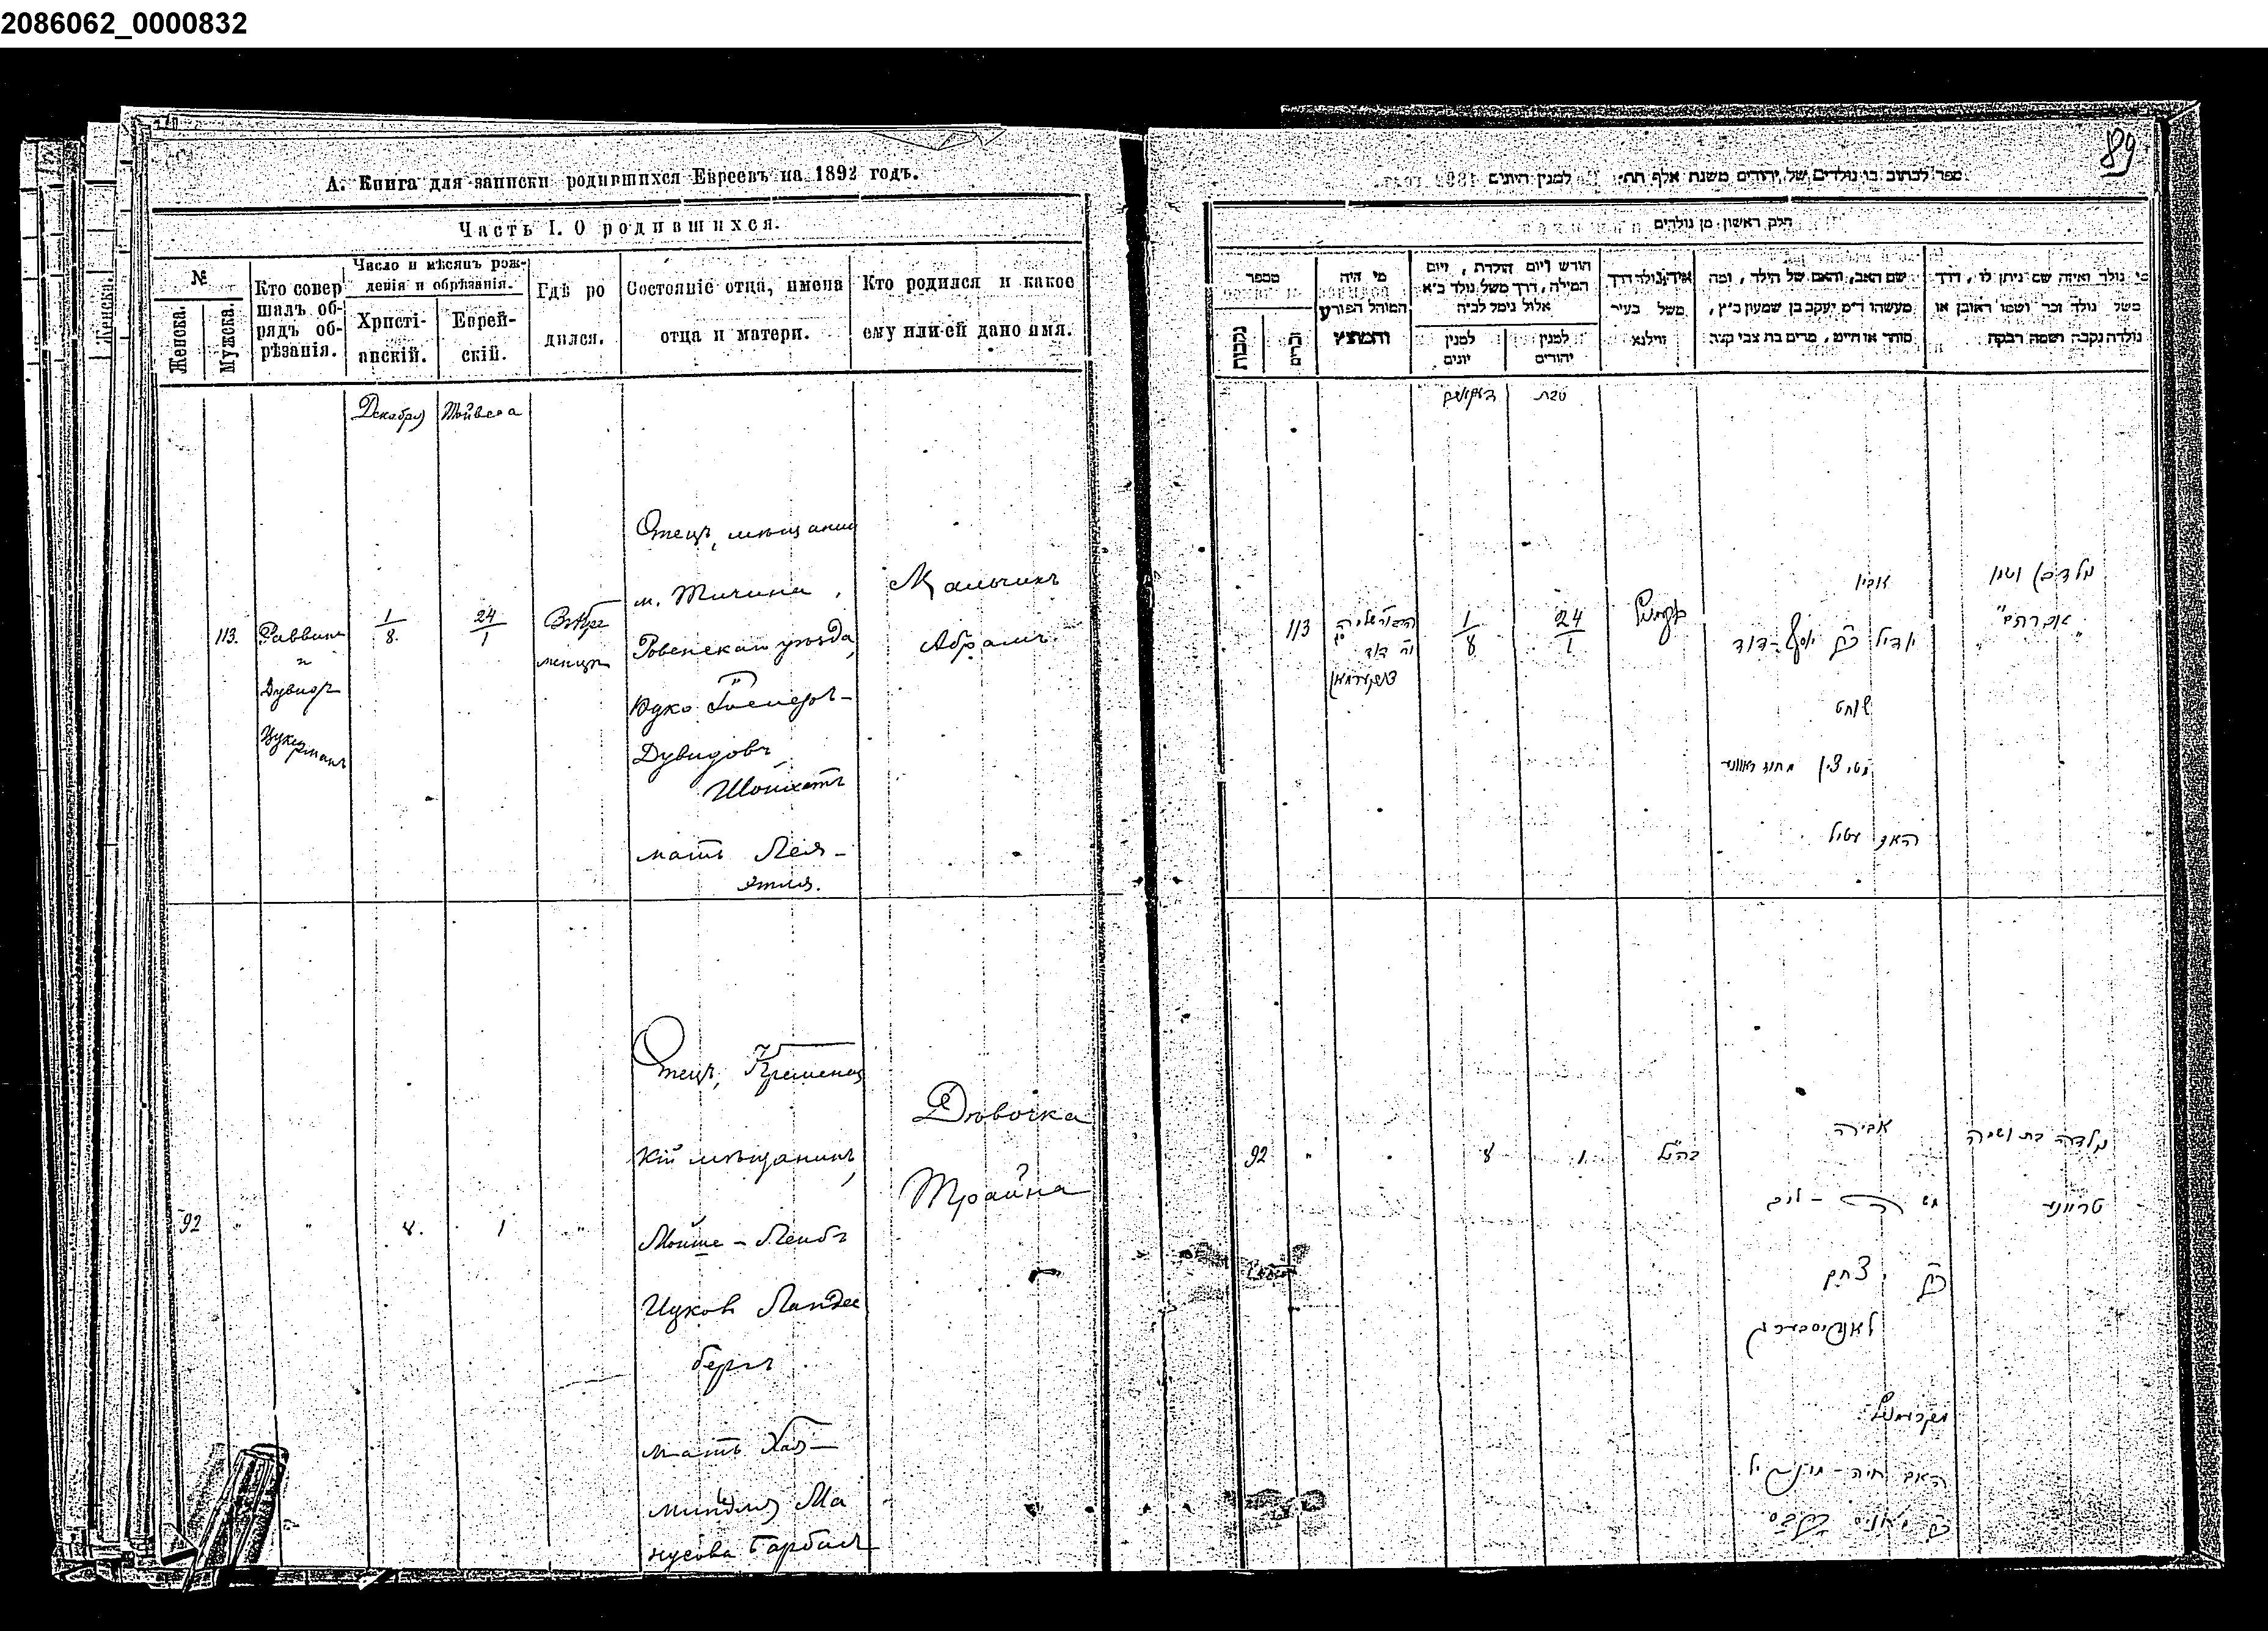 2086062_0000832
89
А. Книга для записки родившихся Евреевъ на 1892 годъ.
Часть I. О родившихся.
№
Женска.
Мужска.
Кто совер
шалъ об-
рядъ об-
рѣзанія.
Число и мѣсяцъ рож-
денія и обрѣзанія.
Христі-
анскій.
Еврей-
скій.
Гдѣ ро
дился.
Состояніе отца, имена
отца и матери.
Кто родился и какое
ему или ей дано имя.
Декабря
Тойвеса
113.
Раввинъ
и
Дувидъ
Цукерманъ
1/8.
24/1
Отецъ, мѣщанинъ
м. Тучина,
Ровенскаго уѣзда,
Юдко
Дувидовъ
Шойхетъ
мать Лея-
Этля.
Мальчикъ
Абрамъ
92
"
"
8.
1
"
Отецъ, Кременец
кій мѣщанинъ,
Мойше-Лейбъ
Ицковъ Ландес
бергъ
мать Хая-
Миндля Ма
нусова Барбалъ
Дѣвочка
Трайна
ספר לכתוב בו נולדים של יהודים משנת אלף תת
למנין היונים
חלק ראשון מן נולדים
מספר
נקבות
זכרים
מי היה
המוהל הפורע
והמוצץ
חודש ויום הולדת, ויום
המילה, דרך משל נולד ב׳א
אלול נימל לב״ה
למנין
יונים
למנין
יהודים
איה נולד דרך
משל בעיר
ווילנא
שם האב, והאם של הילד, ומה
מעשהו ד״מ יעקב בן שמעון כ״ץ,
סוחר או חייט, מרים בת צבי קצב
מי נולד ואיזה שם ניתן לו, דרך
משל נולד זכר ושמו ראובן או
נולדה נקבה ושמה רבקה
טבת
113
1/8
24/1
אביו
שוחט
האם עטיל
נולד בן ושמו
"אברהם"
92
"
8
1
אביה
לאנדיסבערג
נולדה בת ושמה
טריינע